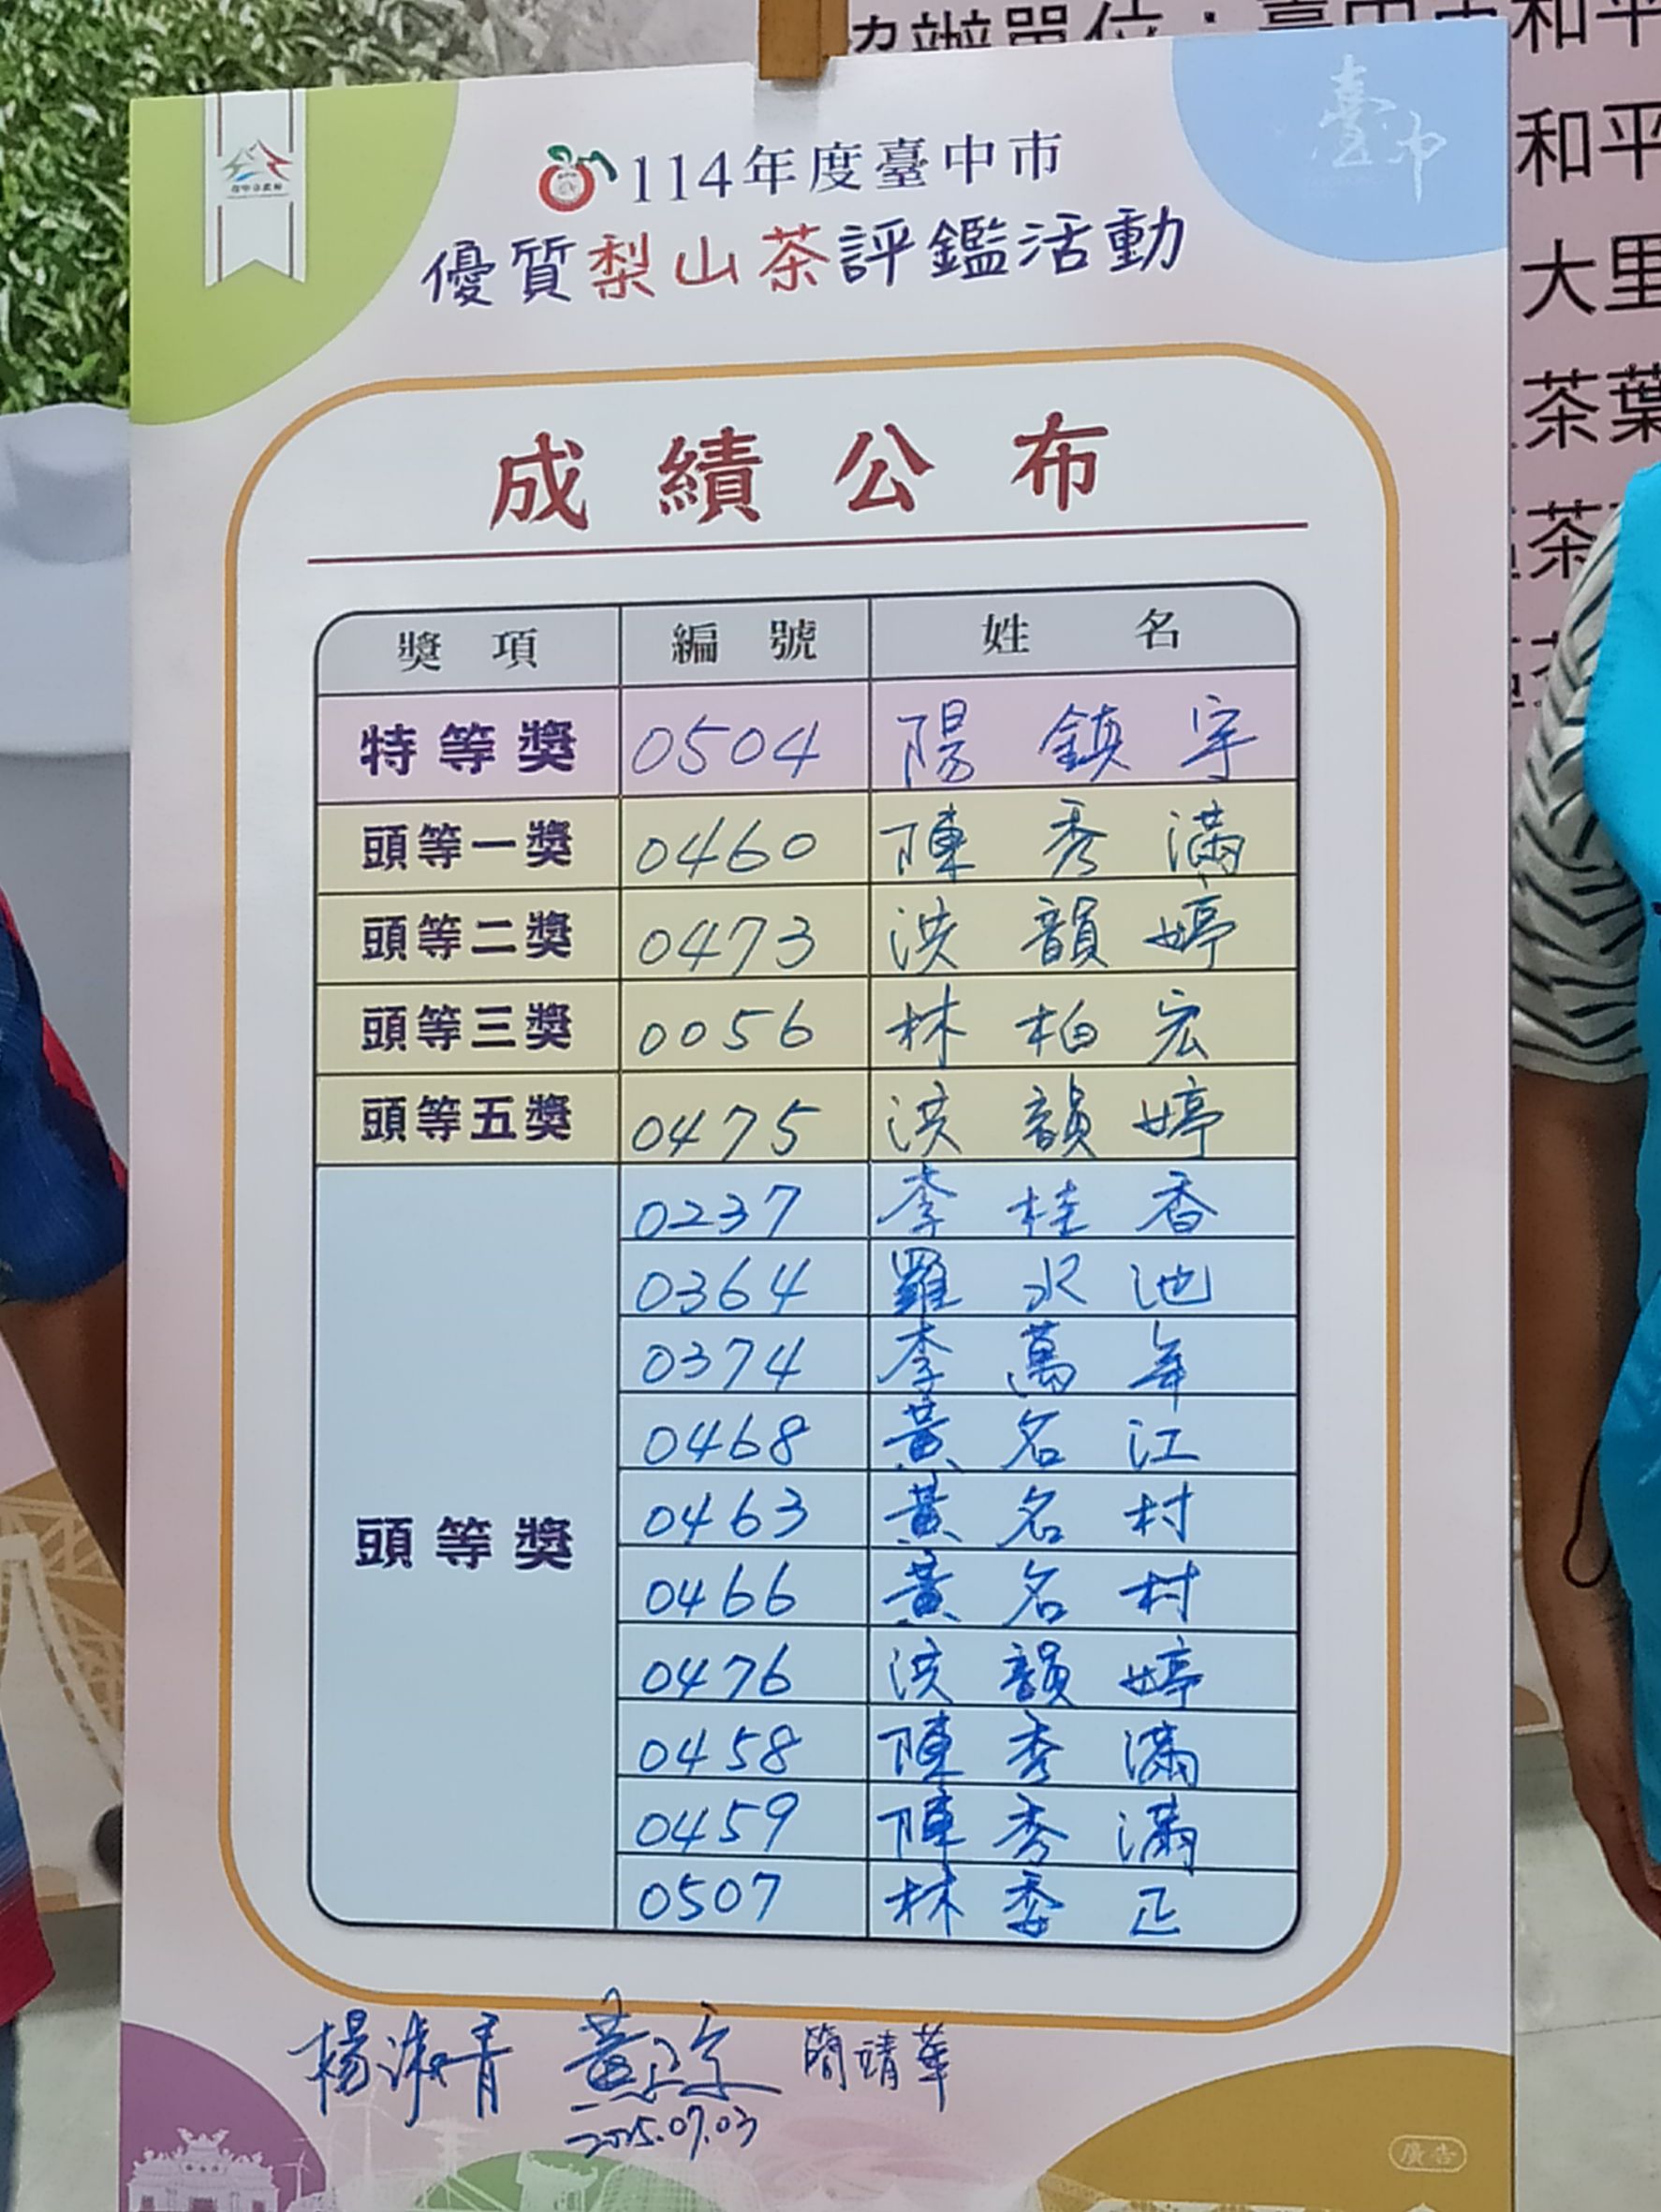 協辦單位：臺中市和平
和平
大里
茶葉
茶
臺中
臺中市政府
114年度臺中市
優質梨山茶評鑑活動
成績公布
獎項 編號 姓名
特等獎 0504 陽鎮宇
頭等一獎 0460 陳秀滿
頭等二獎 0473 洪韻婷
頭等三獎 0056 林柏宏
頭等五獎 0475 洪韻婷
頭等獎 0237 李桂香
0364 羅水池
0374 李萬年
0468 黃名江
0463 黃名村
0466 黃名村
0476 洪韻婷
0458 陳秀滿
0459 陳秀滿
0507 林委正
楊淑青 黃正宗 簡靖華
2025.07.03
廣告